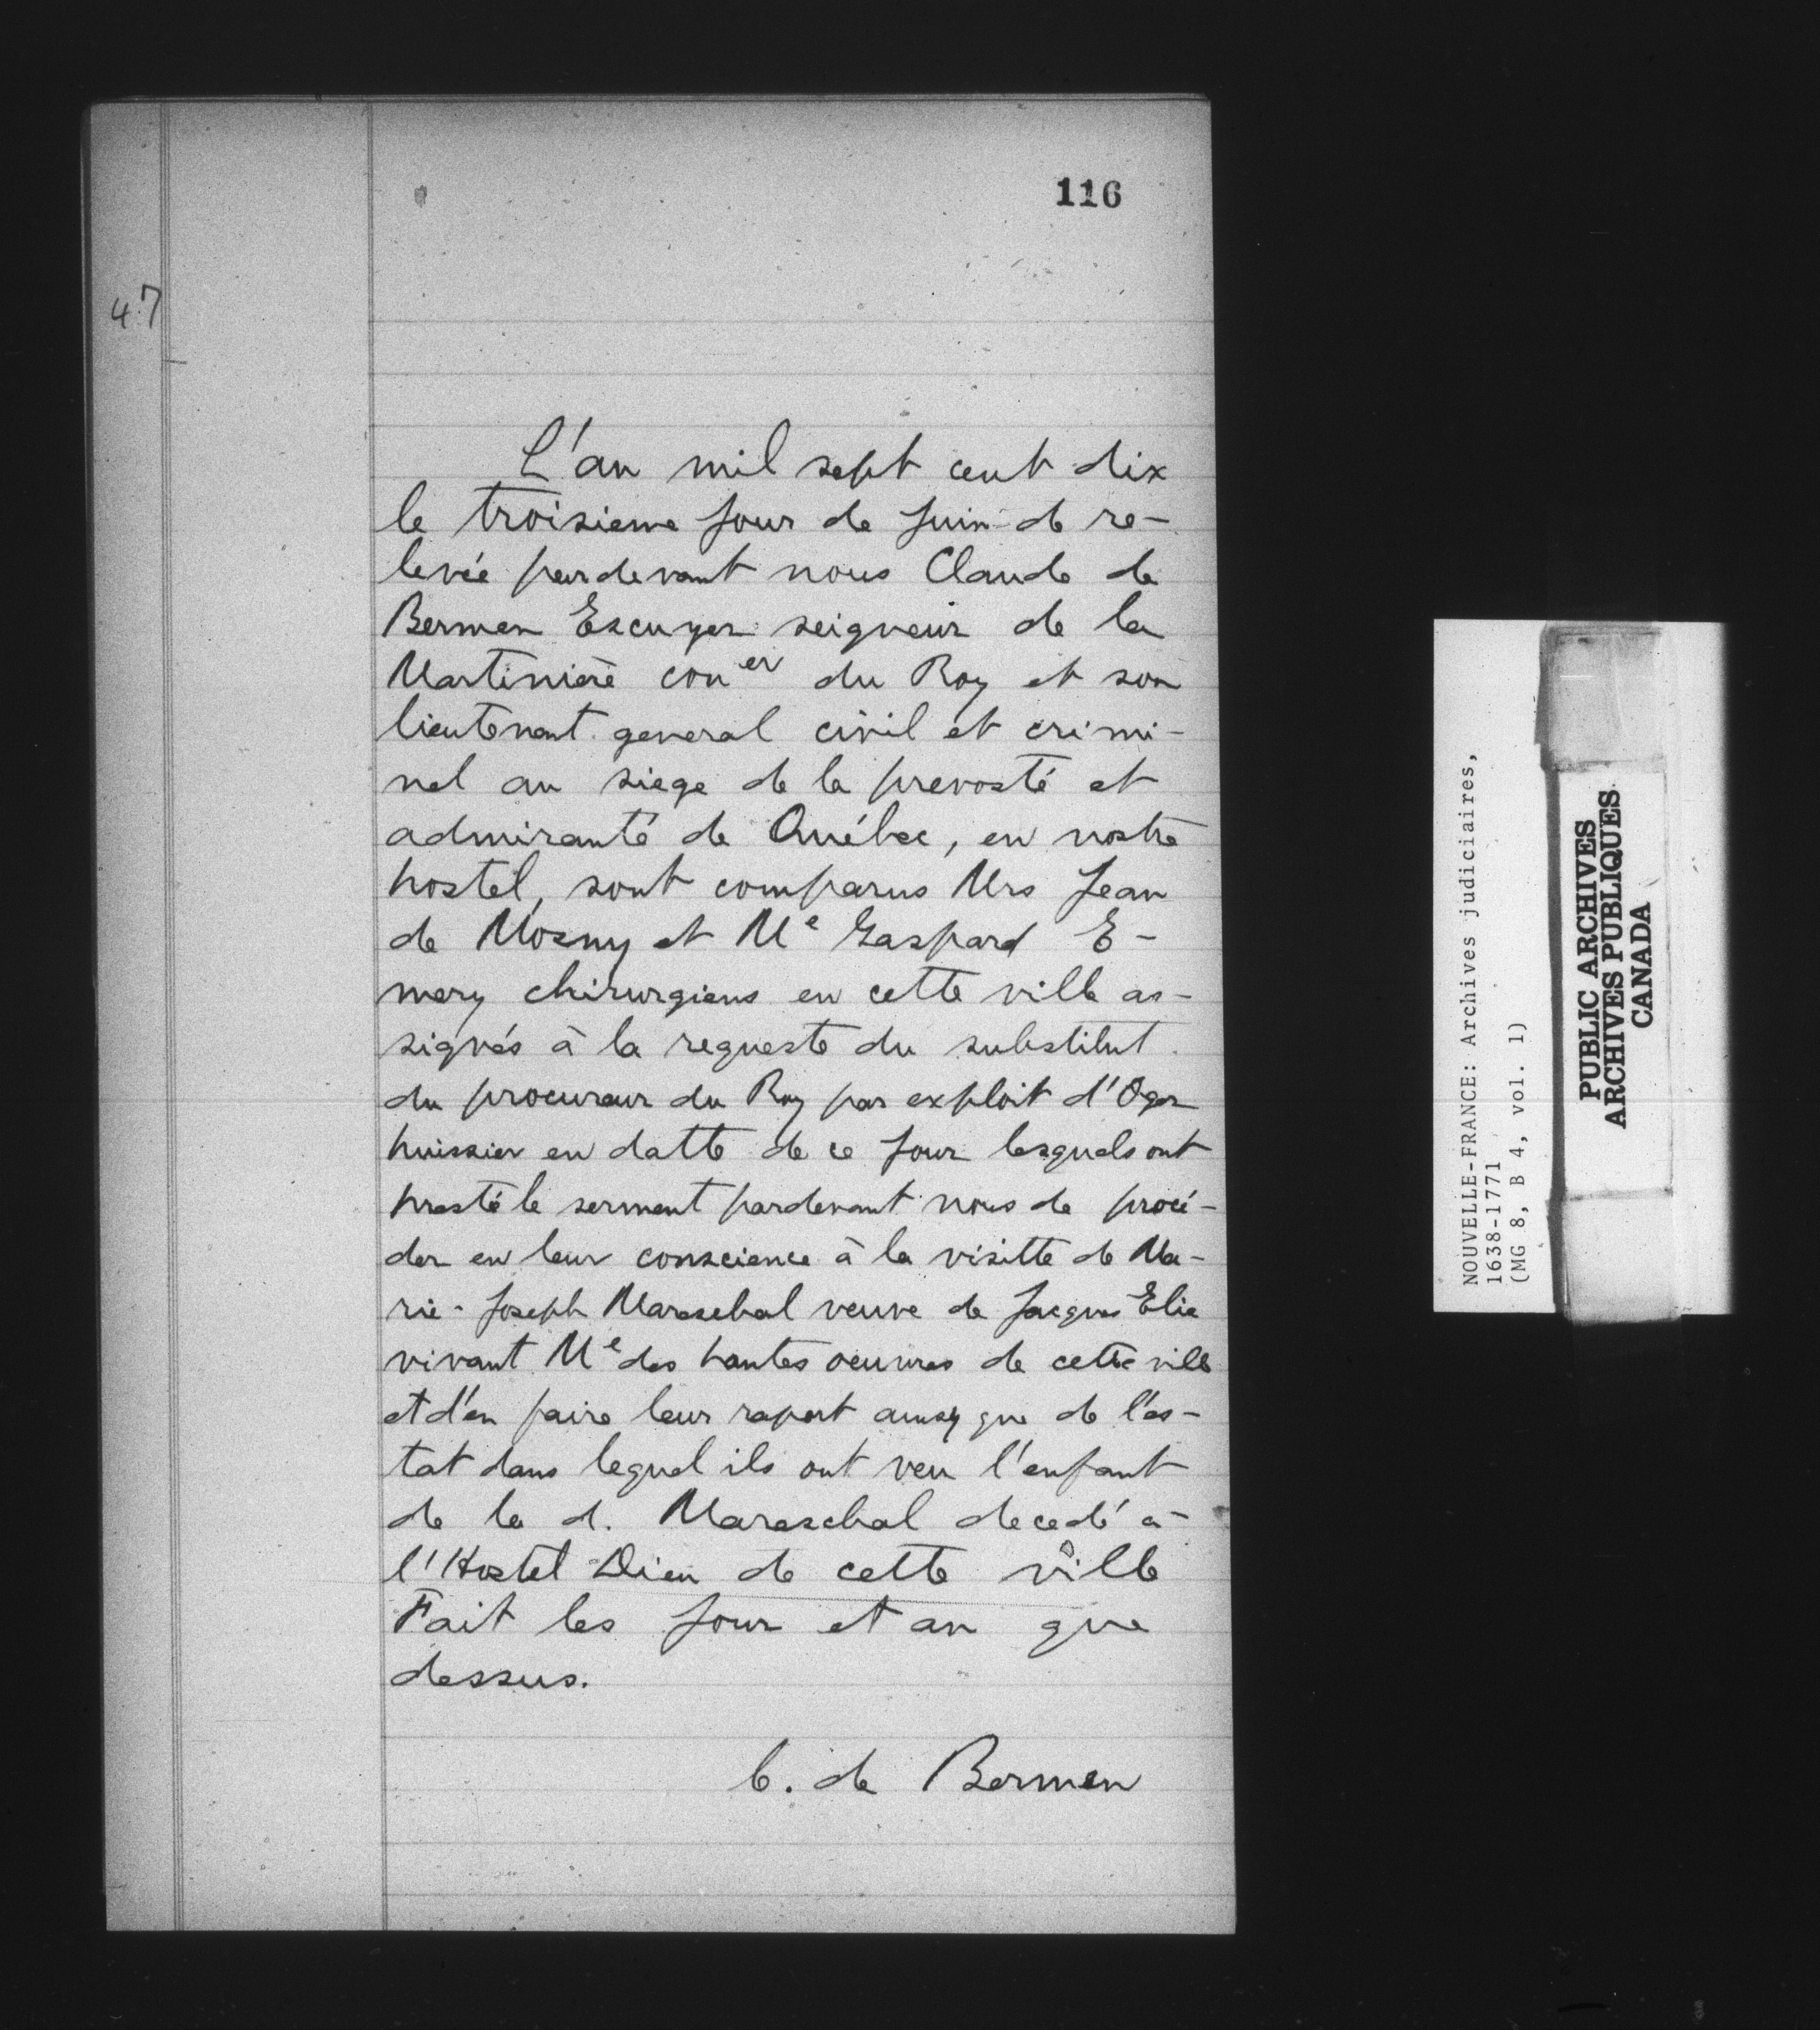 116
47
L'an mil sept cent dix
le troisieme jour de juin de re-
levée pardevant nous Claude de
Bermen Escuyer seigneur de la
Martiniere coner du Roy et son
lieutenant general civil et crimi-
nel au siege de la prevosté et
admirauté de Québec, en nostre
hostel, sont comparus Mrs Jean
de Mosny et Me Gaspard E-
mery chirurgiens en cette ville as-
signés à la requeste du substitut
du procureur du Roy par exploit d'Oger
huissier en datte de ce jour lesquels ont
presté le serment pardevant nous de procé-
der en leur conscience à la visitte de Ma-
rie-Joseph Mareschal veuve de Jacques Elie
vivant Me des hautes oeuvres de cette ville
et d'en faire leur raport ainsy que de l'es-
tat dans lequel ils ont veu l'enfant
de la d. Mareschal decedé à
l'Hostel Dieu de cette ville
Fait les jour et an que
dessus.
C. de Bermen
NOUVELLE-FRANCE: Archives judiciaires,
1638-1771
(MG 8, B 4, vol. 1)
PUBLIC ARCHIVES
ARCHIVES PUBLIQUES
CANADA